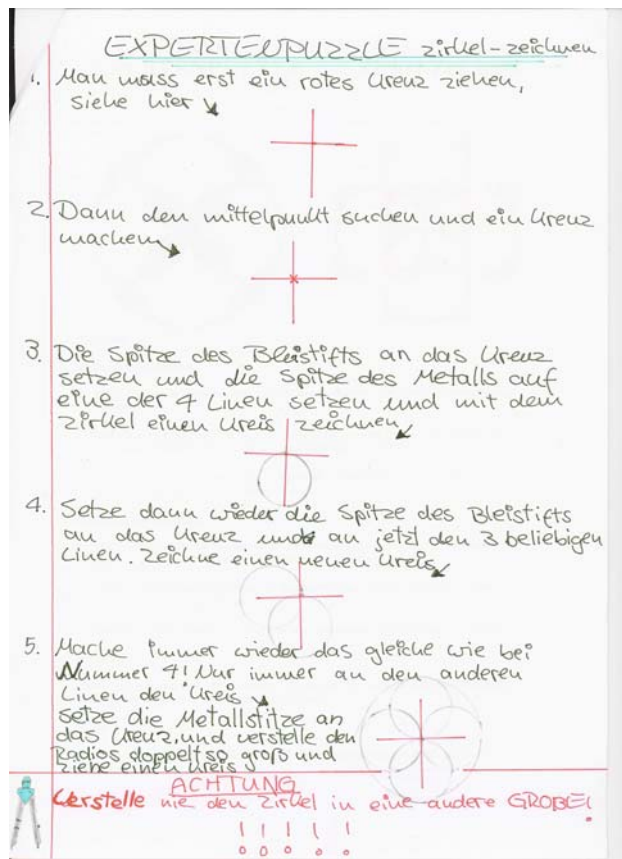 EXPERTENPUZZLE zirkel-zeichnen
1. Man muss erst ein rotes Kreuz ziehen,
siehe hier
2. Dann den mittelpunkt suchen und ein Kreuz
machen
3. Die Spitze des Bleistifts an das Kreuz
setzen und die Spitze des Metalls auf
eine der 4 Linen setzen und mit dem
zirkel einen Kreis zeichnen
4. Setze dann wieder die Spitze des Bleistifts
an das Kreuz und an jetzt den 3 beliebigen
Linen. Zeichne einen neuen Kreis
5. Mache immer wieder das gleiche wie bei
Nummer 4! Nur immer an den anderen
Linen den Kreis
setze die Metallstitze an
das Kreuz, und verstelle den
Radios doppelt so groß und
ziehe einen Kreis
ACHTUNG
Verstelle nie den Zirkel in eine andere GRÖßE!
! ! ! ! !